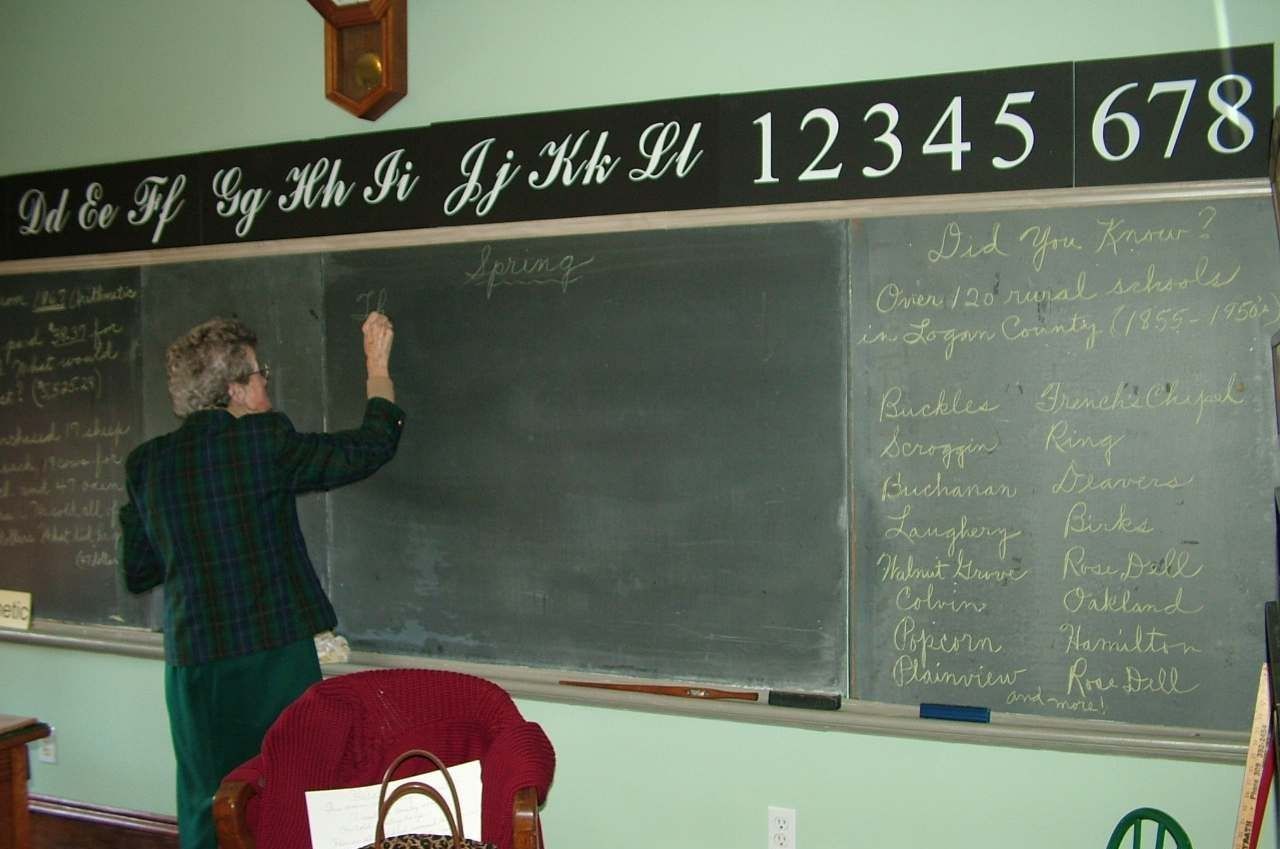 Dd Ee Ff Gg Hh Ii Jj Kk Ll 1 2 3 4 5 6 7 8
1867
paid $38.37 for
What would
($3,525.29)
17 sheep
for
and 47
sold all
dollars What did he
Spring
Th
Did You Know?
Over 120 rural schools
in Logan County (1855-1950's)
Buckles French's Chapel
Scroggin Ring
Buchanan Deavers
Laughery Birks
Walnut Grove Rose Dell
Colvin Oakland
Popcorn Hamilton
Plainview Rose Dell
and more!
netic